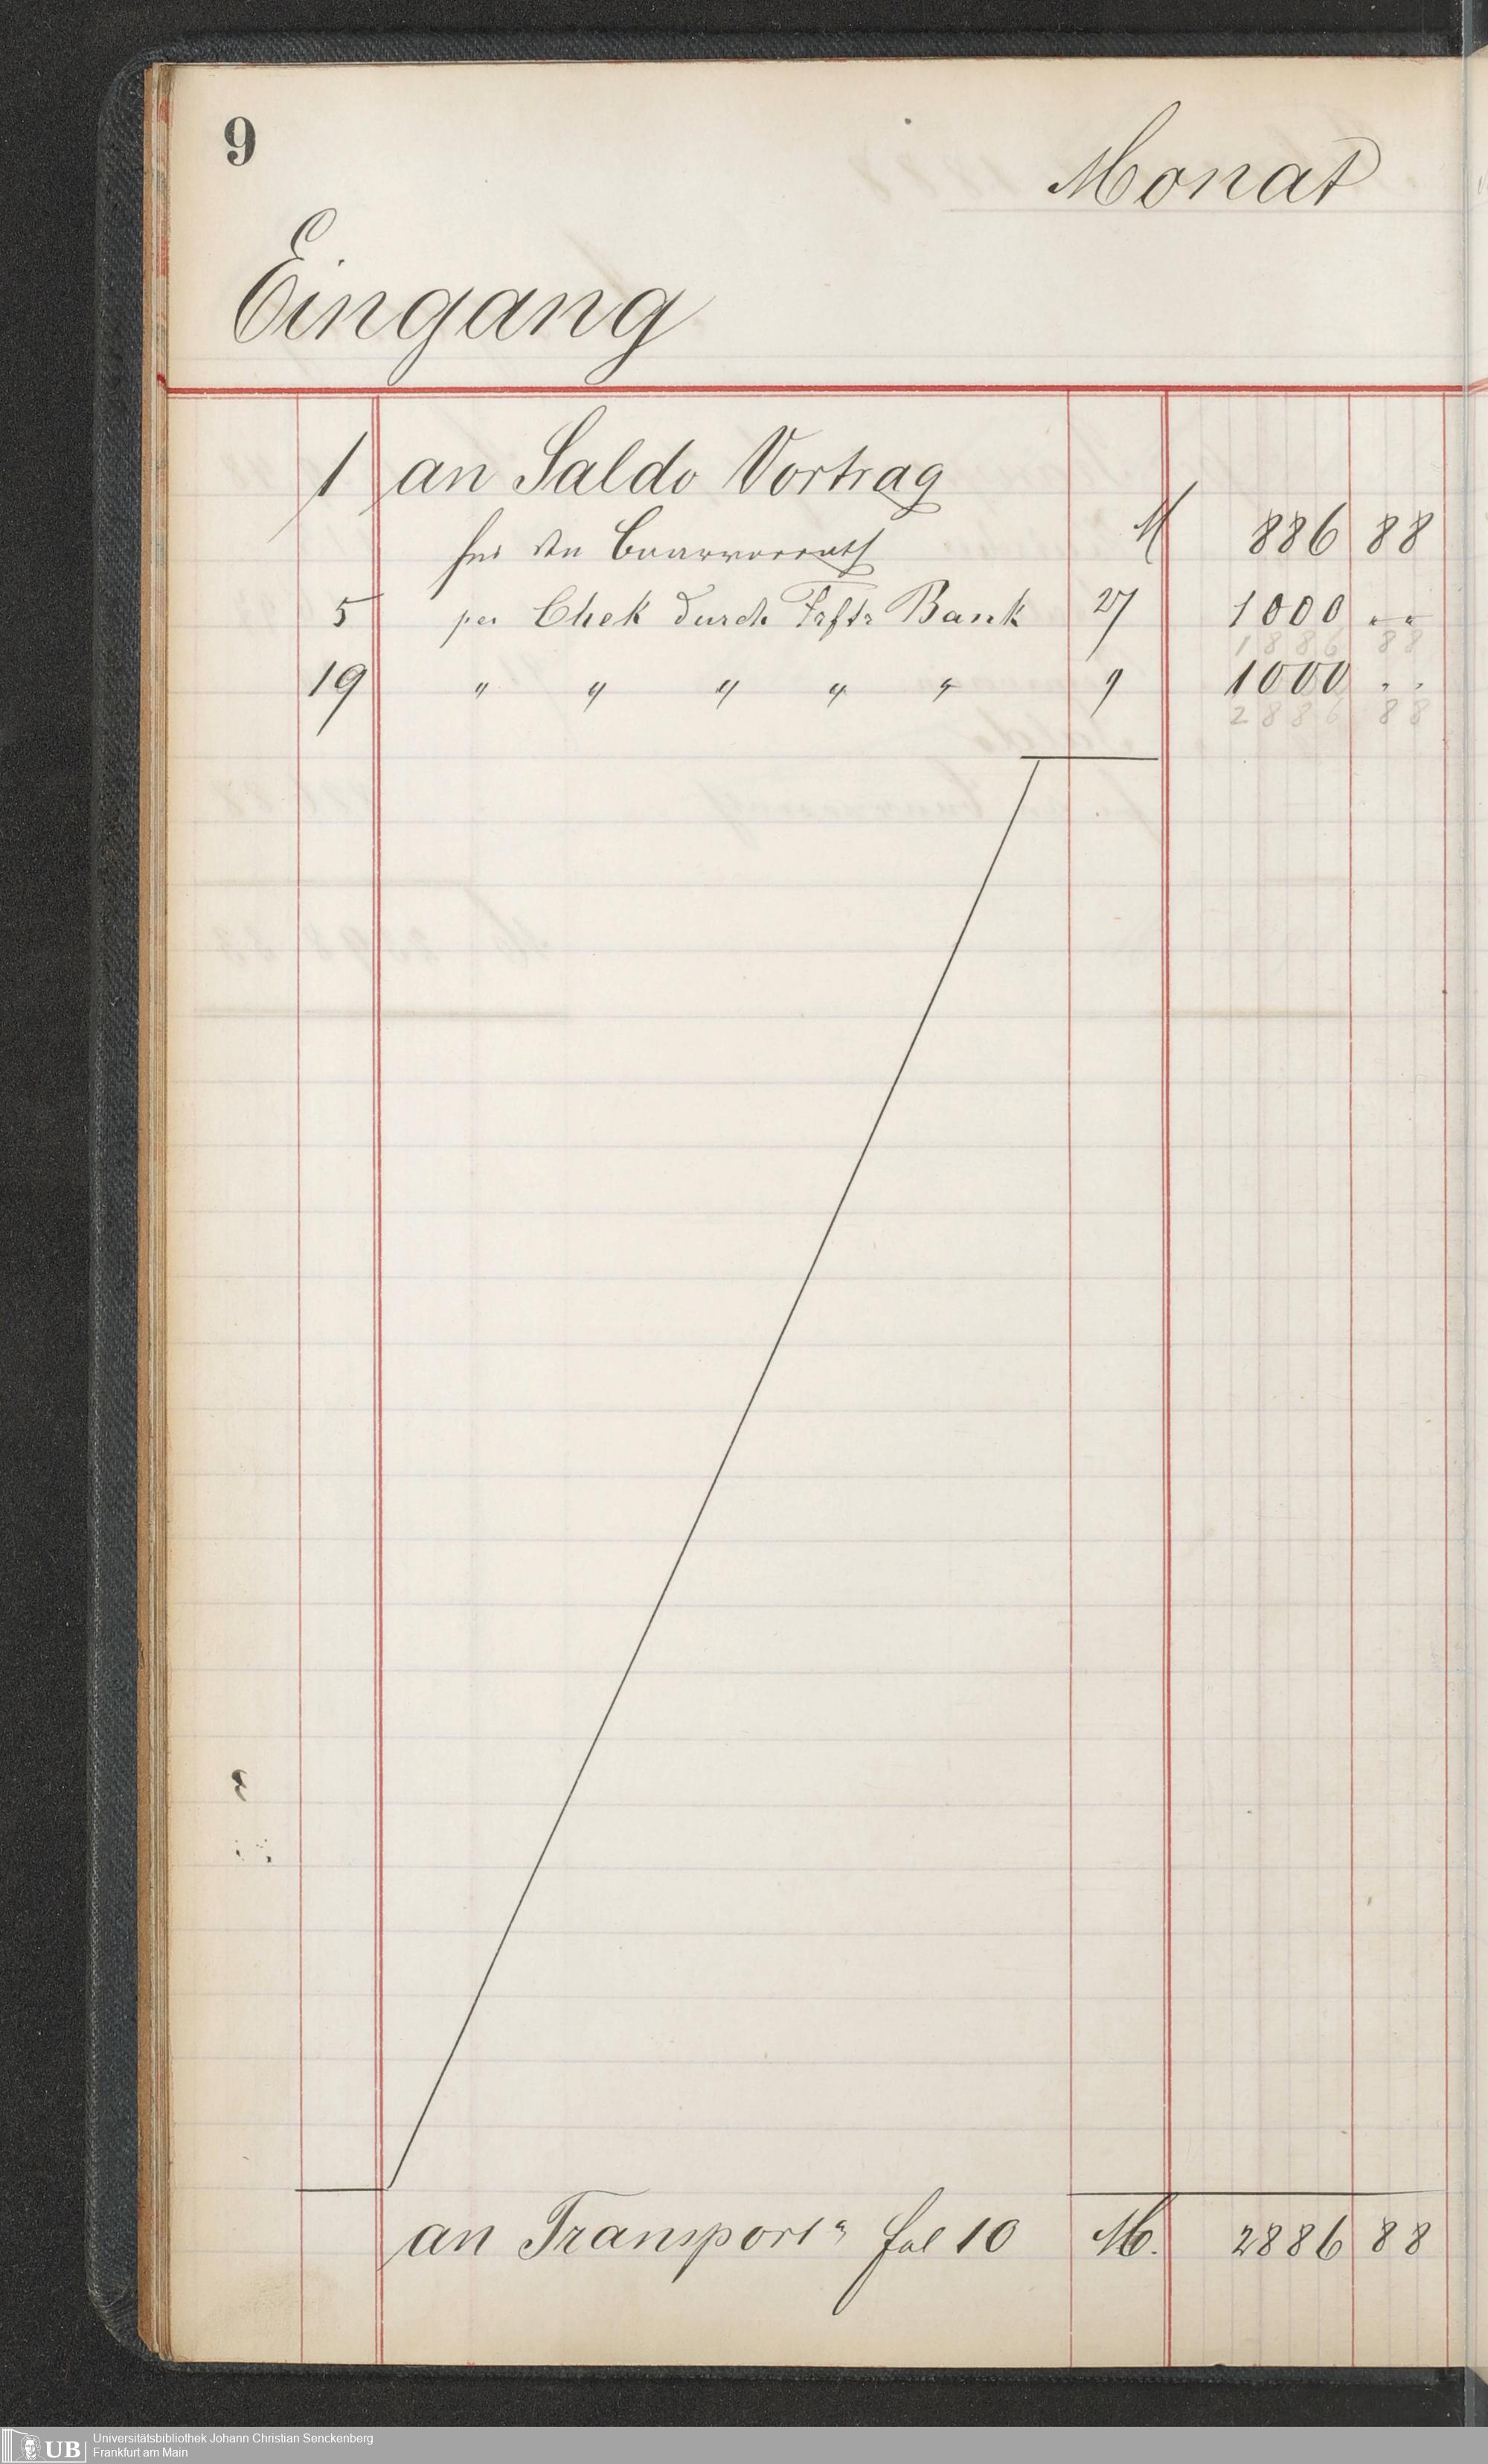 9
Monat
Eingang
1 an Saldo Vortrag
für den Baarvorrath M 886 88
5 per Chek durch Frftr Bank " 1000 " "
1886 88
19 " " " " " " 1000 " "
2886 88
an Transport a fol 10 M. 2886 88
UB Universitätsbibliothek Johann Christian Senckenberg
Frankfurt am Main